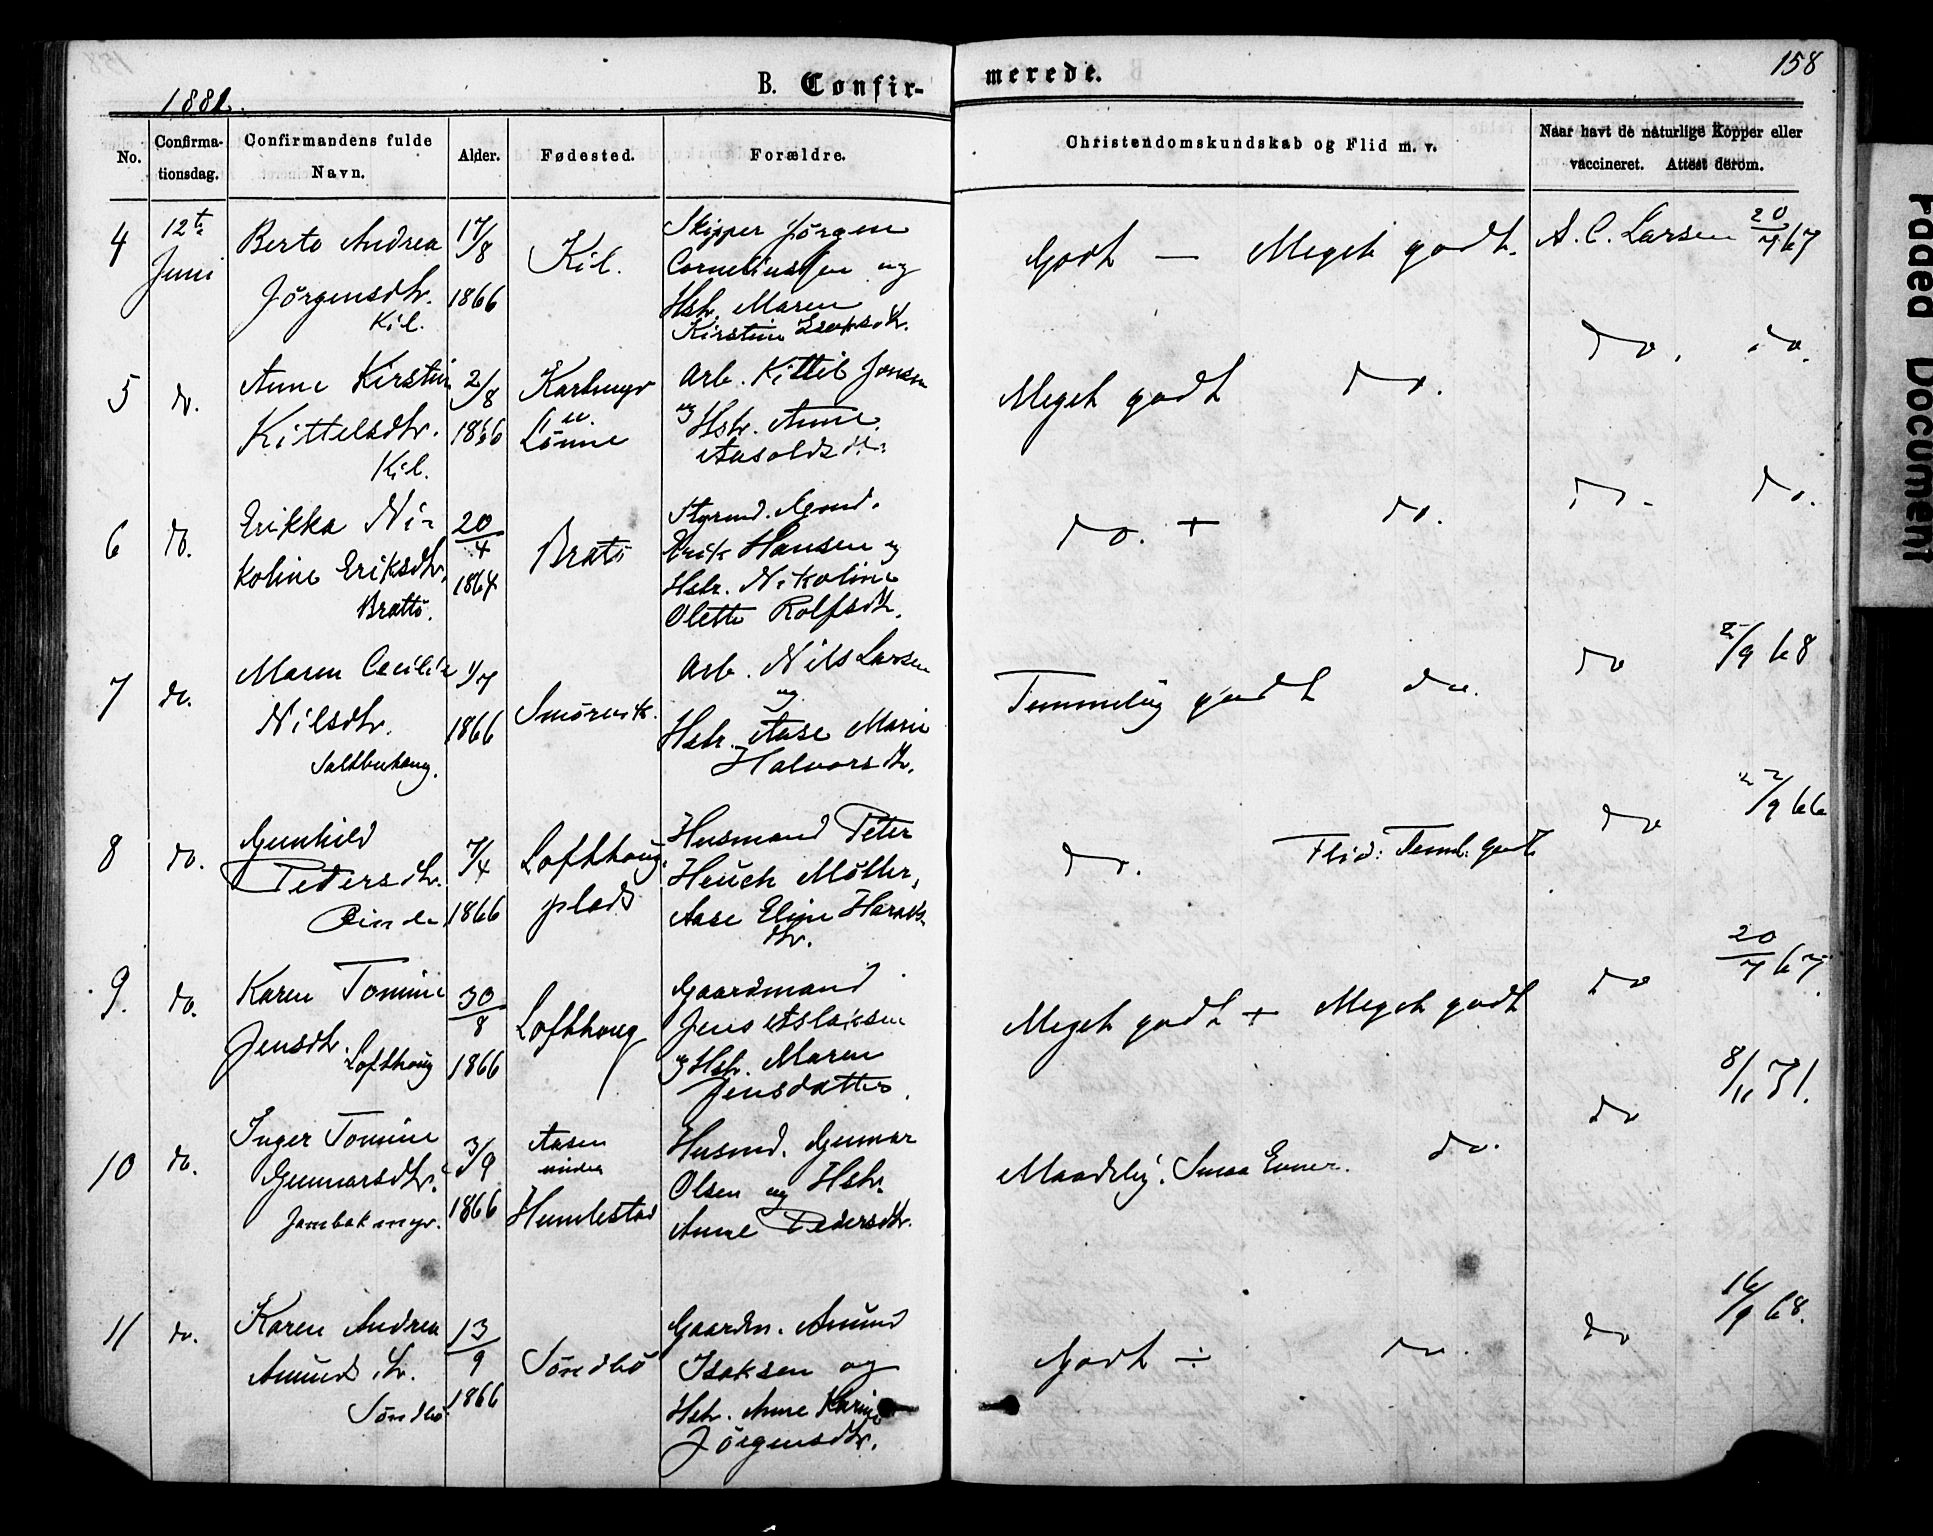 158
1881.
B. Confir-
merede.
No.
Confirma-
tionsdag.
Confirmandens fulde
Navn.
Alder.
Fødested.
Forældre.
Christendomskundskab og Flid m. v.
Naar havt de naturlige Kopper eller
vaccineret. Attest derom.
4
12te
Juni
Berte Andrea
Jörgensdtr.
Kil.
17/8
1866
Kil.
Skipper Jörgen
Corneliussen og
Hstr. Maren
Kirstine
Godt — Meget godt.
A. C. Larsen 20/7 67
5
do.
Anne Kirstine
Kittelsdtr.
Kil.
2/8
1866
Lönne
Arb. Kittil Jonsen
og Hstr. Anne
Aasoldsdtr.
Meget godt do.
do. do.
6
do.
Erikka Ni-
koline Eriksdtr.
Brattö.
20/4
1864
Brattö
Styrmd. Gmd.
Erik Hansen og
Hstr. Nikoline
Olette Rolfsdtr.
do. + do.
do. do.
7
do.
Maren Cecilie
Nilsdtr.
1/7
1866
Smörvik.
Arb. Nils Larsen
og
Hstr. Aase Marie
Halvorsdtr.
Temmelig godt do.
do /9 68
8
do.
Gunhild
Pedersdtr.
7/4
1866
Lofthoug
plads
Husmand Peter
Heuch Möller,
Aase Eline
dtr.
do. Flid: Teml: godt
do /9 66
9.
do.
Karen Tomine
Jensdtr.
Lofthoug
30/8
1866
Lofthoug
Gaardmand
Jens Aslaksen
og Hstr. Maren
Jensdatter
Meget godt + Meget godt
do 20/7 67.
10
do.
Inger Tomine
Gunnarsdtr.
Jombakmyr.
3/9
1866
Aasen
under
Humlestad
Husmd. Gunnar
Olsen og Hstr.
Anne Pedersdtr.
Maadelig. Smaa Evner. do.
do 8/11 71.
11
do.
Karen Andrea
Amundsdtr.
Söndbö
13/9
1866
Söndbö
Gaardm. Amund
Isaksen og
Hstr. Anne Karine
Jörgensdtr.
Godt ÷ do.
do 16/9 68.
Faded Document